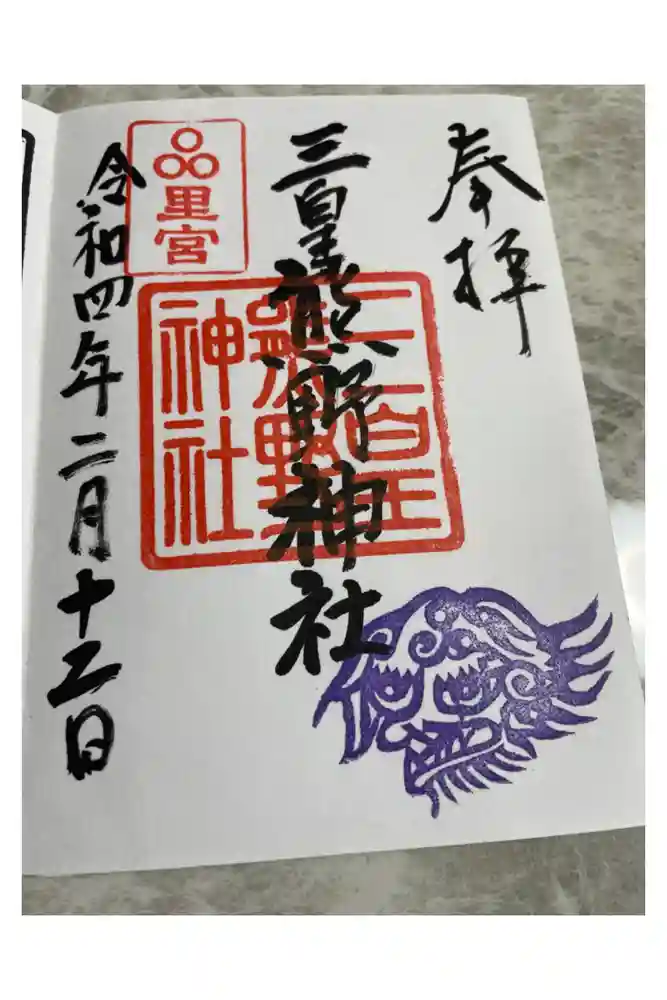 奉拝
三皇熊野神社
三皇熊野神社
里宮
令和四年二月十二日